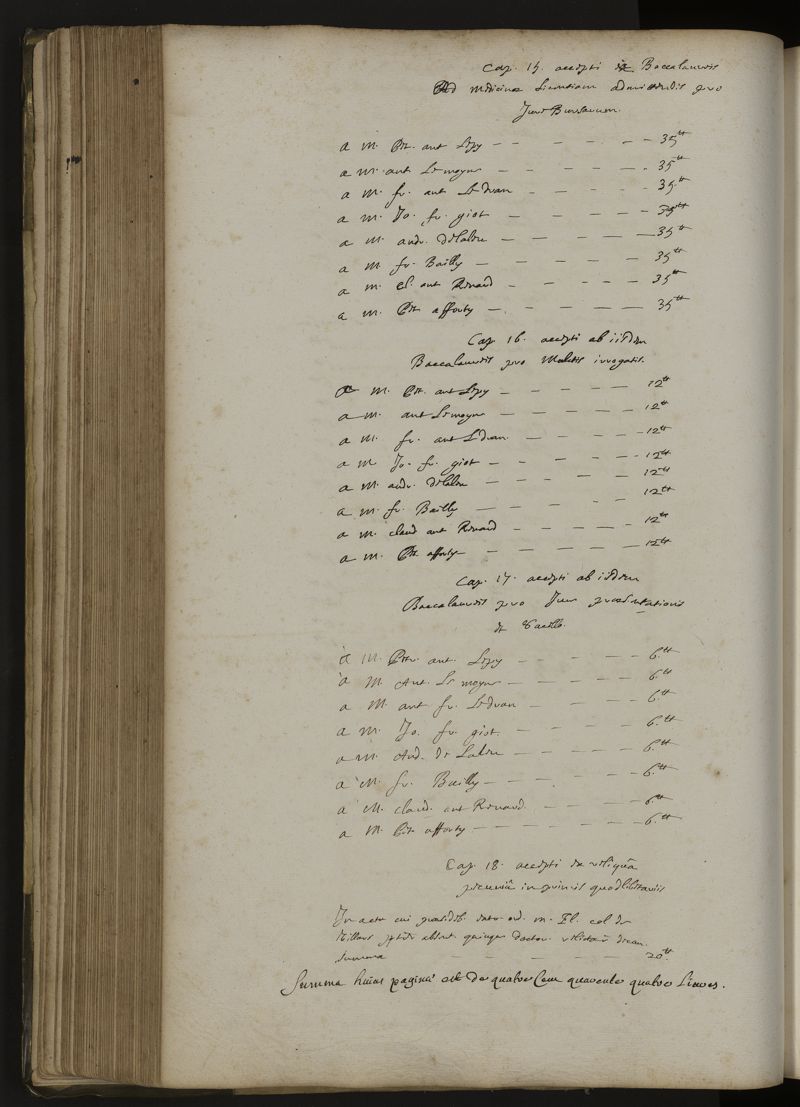 Cap. 15. accepti ex Baccalaureis
Ad medicinæ Licentiam admittendis pro
Jure Bursarum.
a M. Pet. ant Lepy — — — — — 35 tt
a M. ant Lemoyne — — — — 35 tt
a M. fr. ant Ledran — — — — 35 tt
a M. Jo. fr. giot — — — — 35 tt
a M. andr. Delaleu — — — — 35 tt
a M fr. Bailly — — — — 35 tt
a M. cl. ant Renard — — — — 35 tt
a M. Pet afforty — — — — 35 tt
Cap 16. accepti ab iisdem
Baccalaureis pro Mulctis irrogatis.
a M. Pet. ant Lepy — — — — — 12 tt
a M. ant Lemoyne — — — — 12 tt
a M. fr. ant Ledran — — — — 12 tt
a M Jo. fr. giot — — — — — 12 tt
a M. andr. Delaleu — — — — — 12 tt
a M. fr. Bailly — — — — 12 tt
a M. claud ant Renard — — — — — 12 tt
a M. Pet afforty — — — — — 12 tt
Cap. 17. accepti ab iisdem
Baccalaureis pro Jure præsentationis
et
a M. Petr. ant. Lepy — — — — — 6. tt
a M Ant. Le moyne — — — — — 6. tt
a M ant fr. Ledran — — — — 6. tt
a M. Jo. fr. giot. — — — — 6. tt
a M. And. De Laleu — — — — — 6. tt
a M. fr. Bailly — — — — — 6. tt
a M. claud. ant Renard. — — — — 6. tt
a M. Pet afforty — — — — — — 6. tt
Cap. 18. accepti ex reliquâ
pecuniâ in primis quodlibetariis
In actu cui præsideb. M. El. col de
Villars absent. quinque doctor. decan.
summa — — — — — — 20 tt
Summa huius paginæ est De quatre Cent quarente quatre Livres.